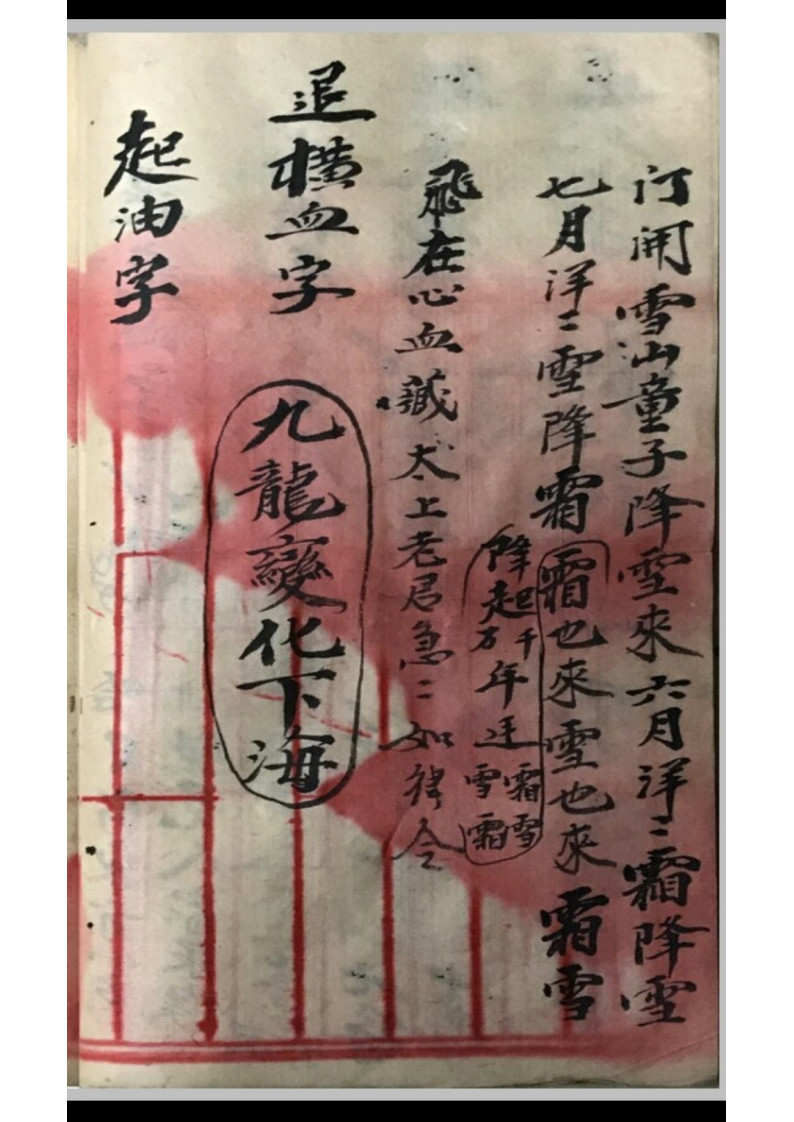 汀開雪山童子降雪來六月洋二霜降雪
七月洋二雪降霜霜也來雪也來霜雪
降起起千万年迋霜雪雪霜
飛在心血藏太上老君急二如律令
追橫血字
九龍變化下海
起油字